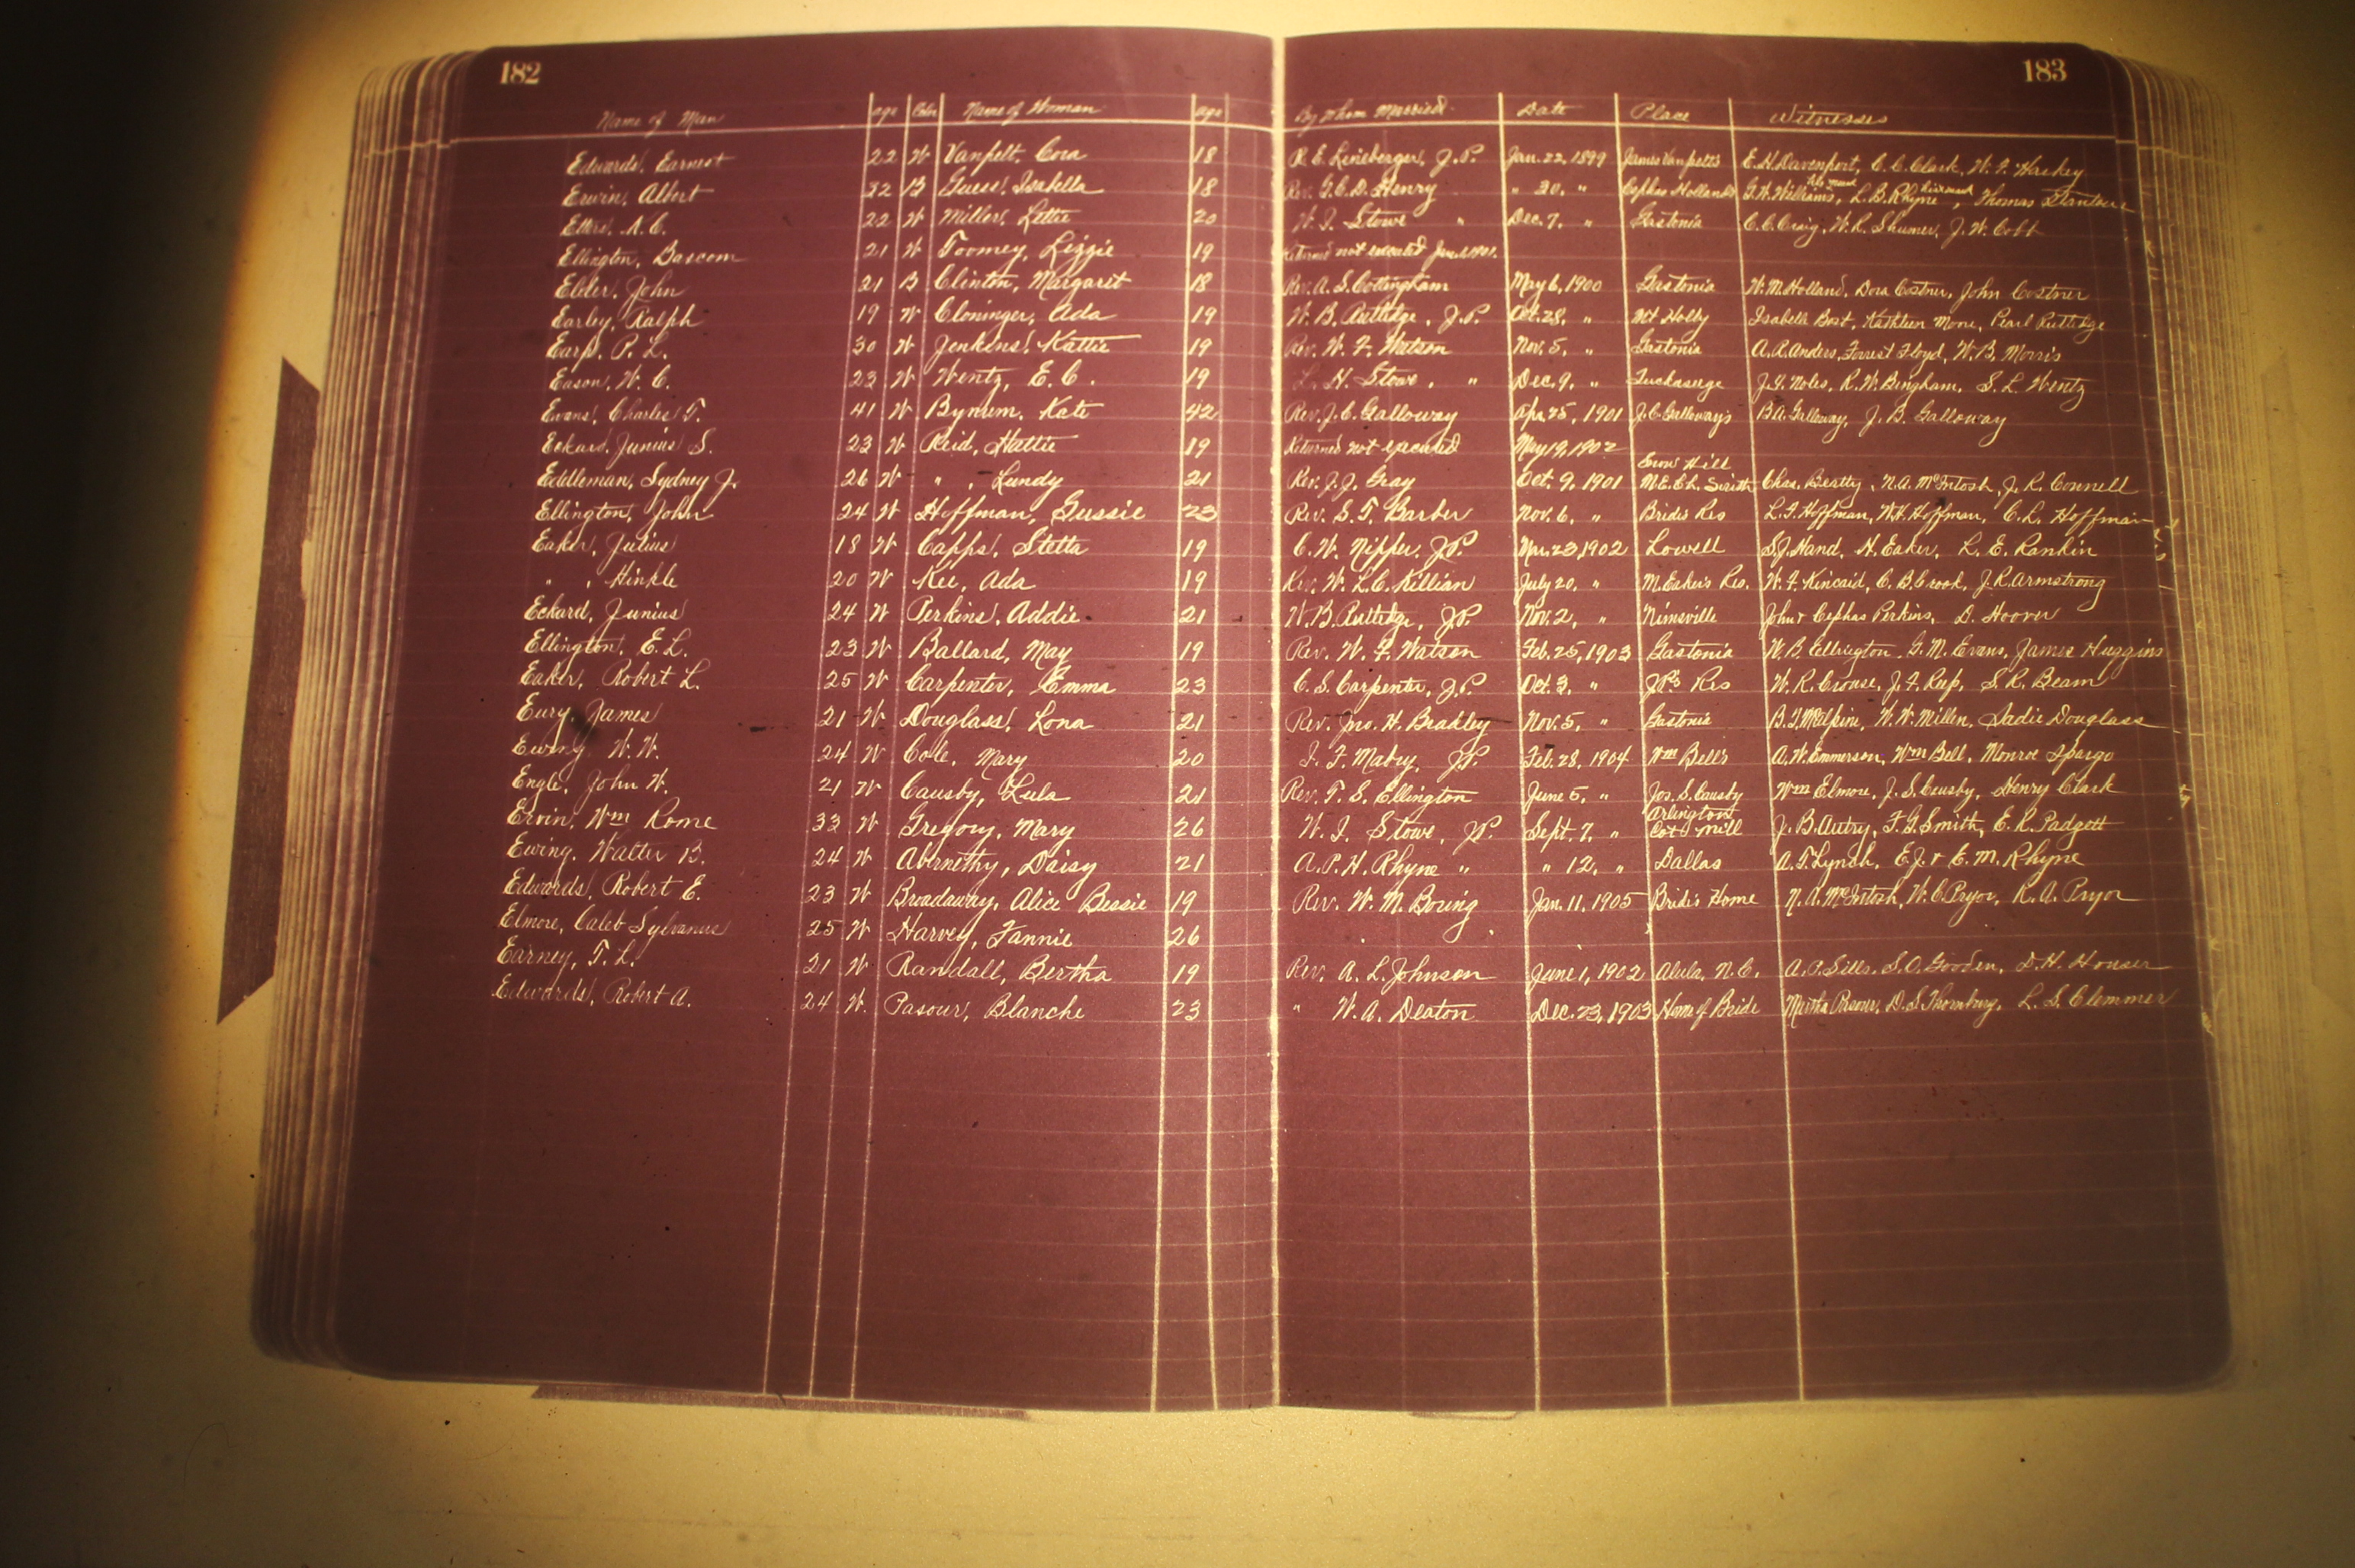 182 183
Name of Man age Color Name of Woman age By Whom Married Date Place Witnesses
Edwards, Earnest 22 W Vanpelt, Cora 18 R. E. Lineberger, J.P. Jan. 22, 1899 James Vanpelt's E. H. Davenport, C. C. Clark, W. F.
Erwin, Albert 22 B Guess, Isabella 18 Rev. G. C. D. Henry " 30, " Cephas Holland's G. W. Williams, L. B. Rhyne, Thomas
Etters, N. C. 22 W Miller, Lettie 20 W. I. Stowe " Dec. 7, " Gastonia C. C. Craig, W. R. Shumer, J. W. Cobb
Ellington, Bascom 21 W Toomey, Lizzie 19 Returned not executed
Elder, John 21 B Clinton, Margaret 18 Rev. A. S. Cottingham May 6, 1900 Gastonia W. M. Holland, Dora Costner, John Costner
Earley, Ralph 19 W Cloninger, Ada 19 W. B. Rutledge, J.P. Oct. 28, " Mt Holly Isabella Bost, Kathleen Mone, Pearl Rutledge
Earp, P. L. 30 W Jenkins, Kattie 19 Rev. W. F. Watson Nov. 5, " Gastonia A. R. Anders, Forrest Floyd, W. B. Morris
Eason, W. C. 23 W Wentz, E. C. 19 L. H. Stowe, " Dec. 9, " Tuckaseige J. F. Noles, R. W. Bingham, S. L. Wentz
Evans, Charles T. 41 W Bynum, Kate 42 Rev. J. C. Galloway Apr. 25, 1901 J. C. Galloway's B. A. Galloway, J. B. Galloway
Eckard, Junius S. 23 W Reid, Hattie 19 Returned not executed May 19, 1902
Eddleman, Sydney J. 26 W " , Lundy 21 Rev. J. J. Gray Oct. 9, 1901 Snow Hill M.E.Ch. South Chas. Beatty, N. A. McIntosh, J. R. Connell
Ellington, John 24 W Hoffman, Gussie 23 Rev. S. T. Barber Nov. 6, " Brides Res L. F. Hoffman, W. H. Hoffman, C. L. Hoffman
Eaker, Julius 18 W Capps, Stella 19 C. W. Nipper, J.P. Mar. 23, 1902 Lowell S. J. Hand, H. Eaker, L. E. Rankin
" , Hinkle 20 W Kee, Ada 19 Rev. W. L. C. Killian July 20, " M. Eaker's Res. W. F. Kincaid, C. B. Crook, J. R. Armstrong
Eckard, Junius 24 W Perkins, Addie 21 W. B. Rutledge, J.P. Nov. 2, " Nimsville John & Cephas Perkins, D. Hoover
Ellington, E. L. 23 W Ballard, May 19 Rev. W. F. Watson Feb. 25, 1903 Gastonia W. B. Ellington, G. M. Evans, James Huggins
Eaker, Robert L. 25 W Carpenter, Emma 23 C. S. Carpenter, J.P. Oct. 3, " J.P's Res W. R. Crouse, J. F. Reep, S. R. Beam
Eury, James 21 W Douglass, Lona 21 Rev. Jno. H. Bradley Nov. 5, " Gastonia B. F. McAlpine, W. W. Millen, Sadie Douglass
Ewing W. W. 24 W Cole, Mary 20 J. F. Mabry, J.P. Feb. 28, 1904 Wm Bell's A. W. Emmerson, Wm Bell, Monroe Spargo
Engle, John W. 21 W Causby, Lula 21 Rev. T. S. Ellington June 5, " Jos. S. Causby Wm Elmore, J. S. Causby, Henry Clark
Ervin, Wm Rome 33 W Gregory, Mary 26 W. I. Stowe, J.P. Sept. 7, " Arlington Cot. Mill J. B. Autry, F. G. Smith, E. R. Padgett
Ewing, Walter B. 24 W Abernethy, Daisy 21 A. P. H. Rhyne " " 12, " Dallas A. T. Lynch, E. J. & E. M. Rhyne
Edwards, Robert E. 23 W Broadaway, Alice Bessie 19 Rev. W. M. Boring Jan. 11, 1905 Bride's Home N. A. McIntosh, W. C. Pryor, R. A. Pryor
Elmore, Caleb Sylvanus 25 W Harvey, Fannie 26
Earney, T. L. 21 W Randall, Bertha 19 Rev. A. L. Johnson June 1, 1902 Alula, N.C. A. P. Sills, S. O. Gooden, D. H. Houser
Edwards, Robert A. 24 W. Pasour, Blanche 23 " W. A. Deaton Dec. 23, 1903 Home of Bride Martha Pasour, D. S. Thornburg, L. S. Clemmer